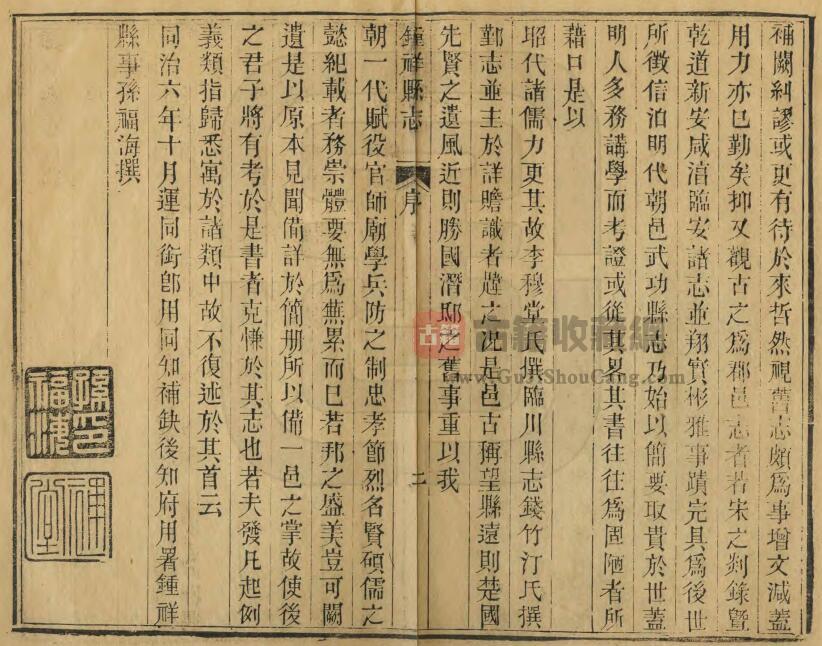 補闕糾謬或更有待於來哲然視舊志頗爲事增文減蓋
用力亦已勤矣抑又觀古之爲郡邑志者若宋之剡錄曁
乾道新安咸淳臨安諸志並翔實彬雅事蹟完具爲後世
所徵信洎明代朝邑武功縣志乃始以簡要取貴於世蓋
明人多務講學而考證或從其畧其書往往爲固陋者所
藉口是以
昭代諸儒力更其故李穆堂氏撰臨川縣志錢竹汀氏撰
鄞志並主於詳贍識者韙之况是邑古稱望縣遠則楚國
先賢之遺風近則勝國潛邸之舊事重以我
鍾祥縣志
序
二
朝一代賦役官師廟學兵防之制忠孝節烈名賢碩儒之
懿紀載者務崇體要無爲蕪累而已若邦之盛美豈可闕
遺是以原本見聞備詳於簡册所以備一邑之掌故使後
之君子將有考於是書者克慊於其志也若夫發凡起例
義類指歸悉寓於諸類中故不復述於其首云
同治六年十月運同銜卽用同知補缺後知府用署鍾祥
縣事孫福海撰
孫印福海
古籍
古籍收藏網
www.GuJiShouCang.com